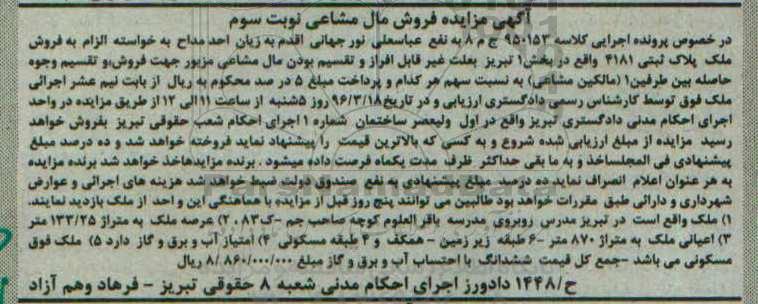 آگهی مزایده فروش مال مشاعی نوبت سوم
در خصوص پرونده اجرایی کلاسه ۹۵۰۱۵۳ ج م ۸ به نفع عباسعلی نور جهانی اقدم به زیان احد مداح به خواسته الزام به فروش
ملک پلاک ثبتی ۴۱۸۱ واقع در بخش۱ تبریز بعلت غیر قابل افراز و تقسیم بودن مال مشاعی مزبور جهت فروش و تقسیم وجوه
حاصله بین طرفین۱ (مالکین مشاعی) به نسبت سهم هر کدام و پرداخت مبلغ ۵ در صد محکوم به ریال از بابت نیم عشر اجرائی
ملک فوق توسط کارشناس رسمی دادگستری ارزیابی و در تاریخ۹۶/۳/۱۸ روز ۵شنبه از ساعت ۱۱الی ۱۲ از طریق مزایده در واحد
اجرای احکام مدنی دادگستری تبریز واقع در اول ولیعصر ساختمان شماره ۱ اجرای احکام شعب حقوقی تبریز بفروش خواهد
رسید مزایده از مبلغ ارزیابی شده شروع و به کسی که بالاترین قیمت را پیشنهاد نماید فروخته خواهد شد و ده درصد مبلغ
پیشنهادی فی المجلساخذ و به ما بقی حداکثر ظرف مدت یکماه فرصت داده میشود . برنده مزایدهاخذ خواهد شد برنده مزایده
به هر عنوان اعلام انصراف نماید ده درصد مبلغ پیشنهادی به نفع صندوق دولت ضبط خواهد شد هزینه های اجرائی و عوارض
شهرداری و دارائی طبق مقررات خواهد بود طالبین می توانند پنج روز قبل از مزایده با هماهنگی این و احد از ملک بازدید نمایند.
۱) ملک واقع است در تبریز مدرس روبروی مدرسه باقرالعلوم کوچه صاحب جم -ک۸۳ . ۲) عرصه ملک به متراژ ۱۳۳/۲۵ متر
۳) اعیانی ملک به متراژ ۸۷۰ متر -۶ طبقه زیر زمین - همکف و ۴ طبقه مسکونی ۴) امتیاز آب و برق و گاز دارد ۵) ملک فوق
مسکونی می باشد -جمع کل قیمت ششدانگ با احتساب آب و برق و گاز مبلغ ۸/۸۶۰/۰۰۰/۰۰۰ ریال
ح/۱۴۴۸ دادورز اجرای احکام مدنی شعبه ۸ حقوقی تبریز - فرهاد وهم آزاد